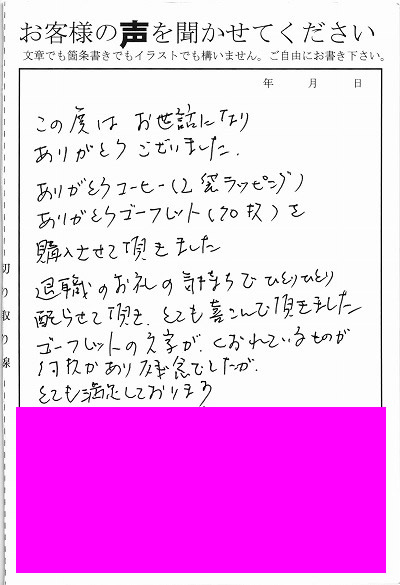 お客様の声を聞かせてください
文章でも箇条書きでもイラストでも構いません。ご自由にお書き下さい。
年 月 日
この度は お世話になり
ありがとうございました.
ありがとうコーヒー(2袋ラッピング)
ありがとうゴーフレット(70枚)を
購入させて頂きました
退職のお礼の気持ちで ひとりひとり
配らせて頂き、とても喜こんで頂きました
ゴーフレットの文字が、くずれているものが
何枚かあり残念でしたが、
とても満足しております
切り取り線